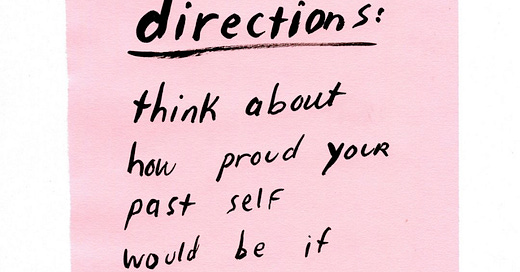 directions:
think about
how proud your
past self
would be if